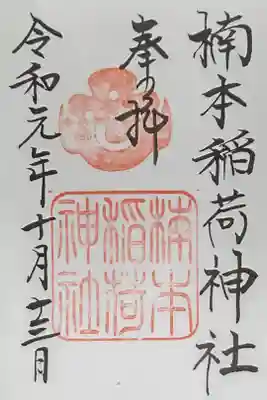 楠本稲荷神社
奉拝
楠本
稲荷
神社
令和元年十月十三日